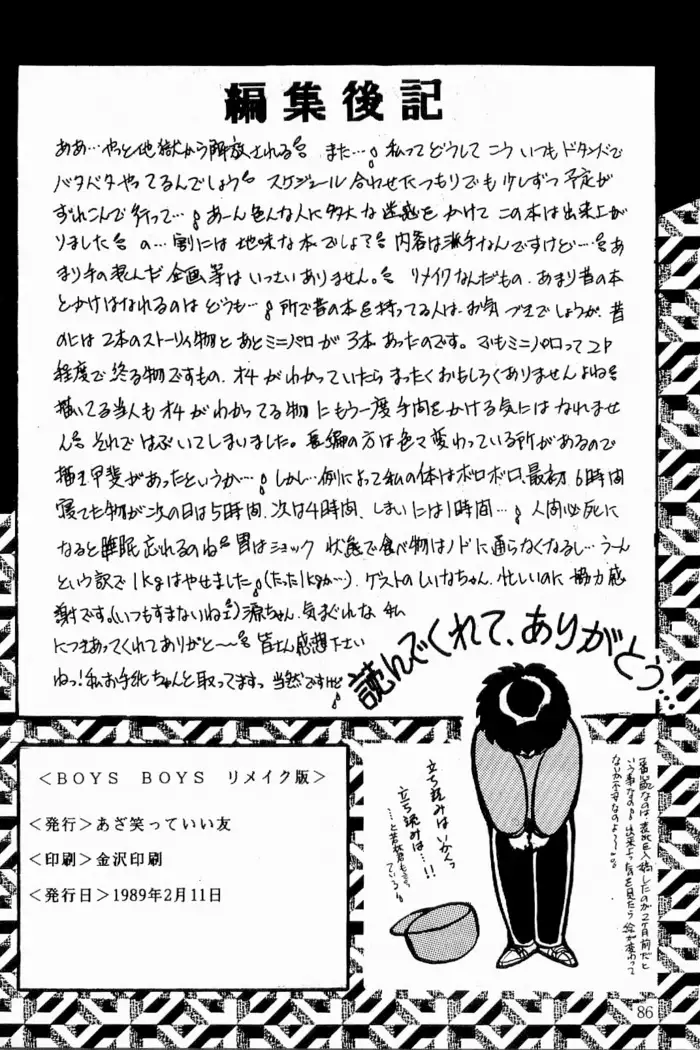 編集後記
ああ…やっと地獄から解放される また…私ってどうしてこういつもドタンバで
バタバタやってるんでしょう スケジュール合わせたつもりでも少しずつ予定が
ずれこんで行って… あーん色んな人に多大な迷惑をかけてこの本は出来上が
りました の…割には地味な本でしょ? 内容は派手なんですけど…あ
まり手の込んだ企画等はいっさいありません。リメイクなんだもの、あまり昔の本
とかけはなれるのはどうも… 所で昔の本を持ってる人は、お気づきでしょうが、昔
のには2本のストーリィ物とあとミニパロが3本あったのです。でもミニパロって2P
程度で終る物ですもの、オチがわかっていたらまったくおもしろくありませんよね
描いてる当人もオチがわかってる物にもう一度手間をかける気にはなれませ
ん それではぶいてしまいました。長編の方は色々変わっている所があるので
描き甲斐があったというか… しかし…例によって私の体はボロボロ、最初6時間
寝てた物が次の日は5時間、次は4時間、しまいには1時間… 人間必死に
なると睡眠忘れるのね 胃はショック状態で食べ物はノドに通らなくなるし…うーん
という訳で1kgはやせました(たった1kgか…)。ゲストのしいなちゃん、忙しいのに協力感
謝です。(いつもすまないね)源ちゃん、気まぐれな私
につきあってくれてありがと〜 皆さん感想下さい
ねっ!私お手紙ちゃんと取ってますっ 当然ですけど
読んでくれて、ありがとう…
<BOYS BOYS リメイク版>
<発行>あざ笑っていい友
<印刷>金沢印刷
<発行日>1989年2月11日
立ち読みはいかんっ
立ち読みは…!!
心配なのは表紙を入稿したのが2ヶ月前だと
いう事なの 出来上ったのを見たら絵が変わって
ないか不安なのよ〜〜。
86